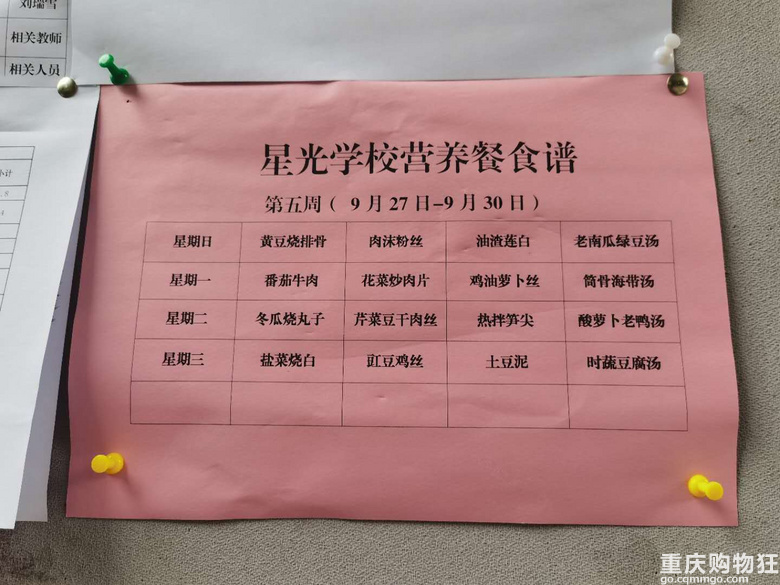 刘瑞雪
相关教师
相关人员
小计
星光学校营养餐食谱
第五周（ 9 月 27 日-9 月 30 日）
星期日 黄豆烧排骨 肉沫粉丝 油渣莲白 老南瓜绿豆汤
星期一 番茄牛肉 花菜炒肉片 鸡油萝卜丝 筒骨海带汤
星期二 冬瓜烧丸子 芹菜豆干肉丝 热拌笋尖 酸萝卜老鸭汤
星期三 盐菜烧白 豇豆鸡丝 土豆泥 时蔬豆腐汤
重庆购物狂
go.cqmmgo.com